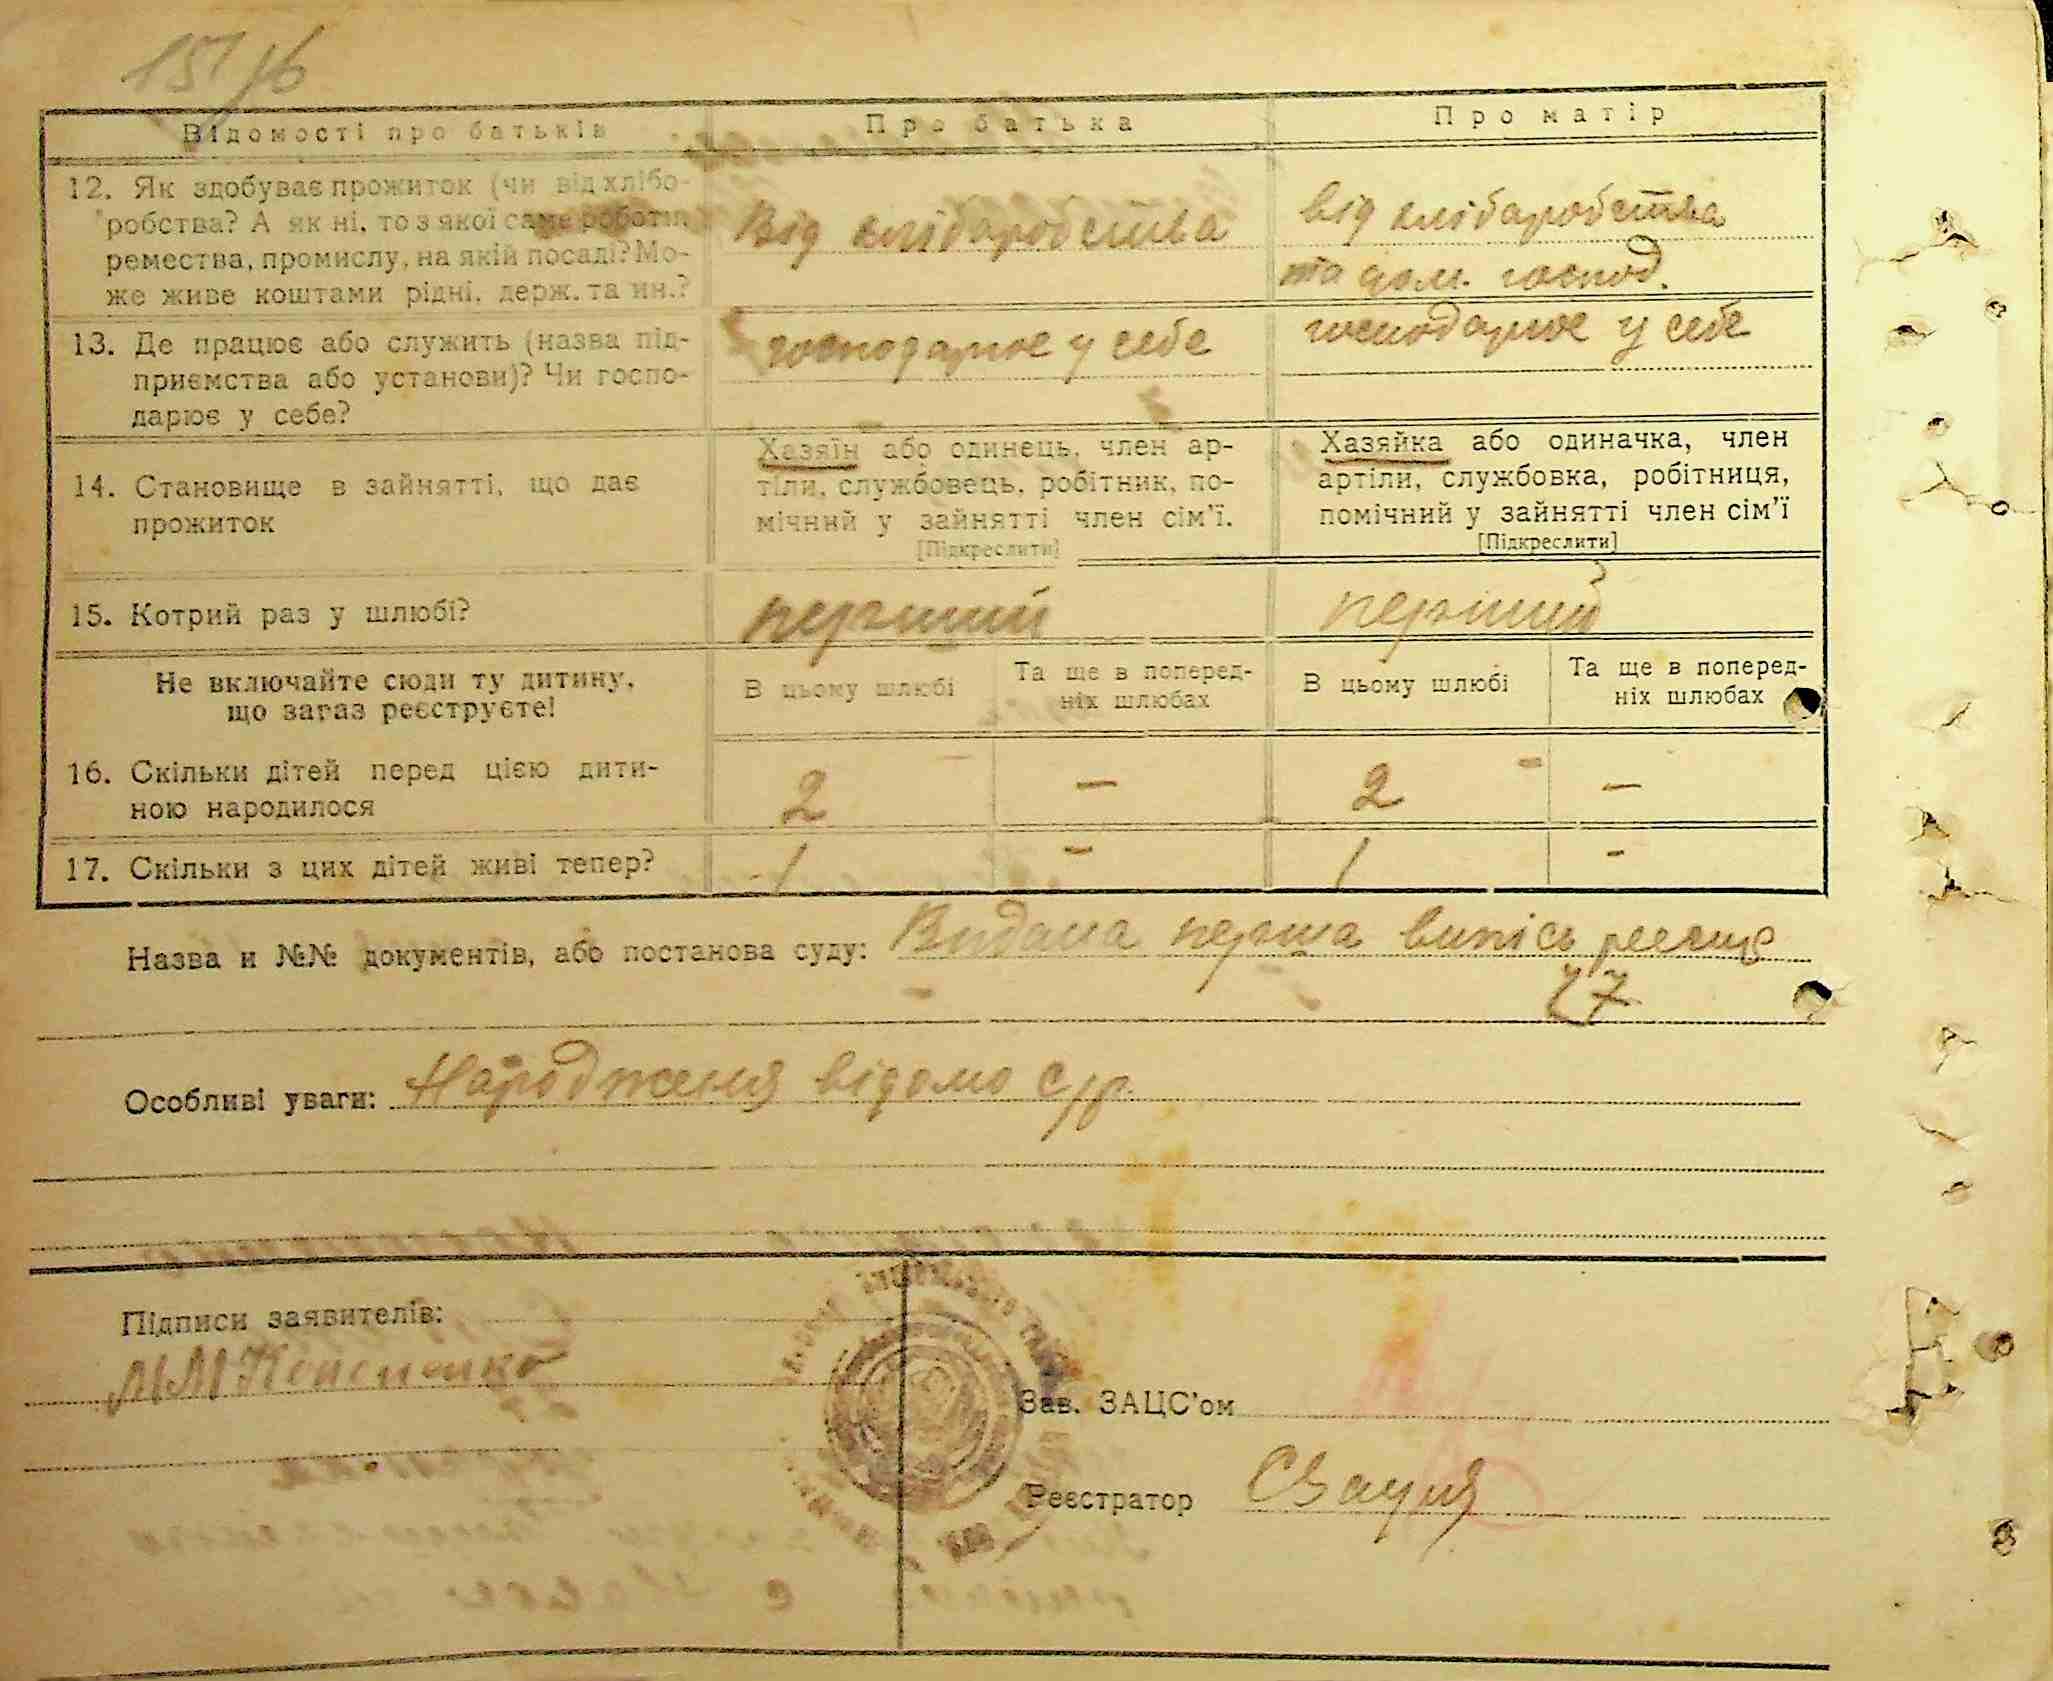 15/16
Відомості про батьків
Про батька
Про матір
12. Як здобуває прожиток (чи від хлібо-
робства? А як ні, то з якої саме роботи,
ремества, промислу, на якій посаді? Мо-
же живе коштами рідні, держ. та ин.?
Від хліборобства
від хліборобства
та дом. господ.
13. Де працює або служить (назва під-
приємства або установи)? Чи госпо-
дарює у себе?
господарює у себе
господарює у себе
14. Становище в зайнятті, що дає
прожиток
Хазяїн або одинець, член ар-
тіли, службовець, робітник, по-
мічний у зайнятті член сім'ї.
[Підкреслити]
Хазяйка або одиначка, член
артіли, службовка, робітниця,
помічний у зайнятті член сім'ї
[Підкреслити]
15. Котрий раз у шлюбі?
перший
перший
Не включайте сюди ту дитину,
що зараз реєструєте!
В цьому шлюбі
Та ще в поперед-
ніх шлюбах
В цьому шлюбі
Та ще в поперед-
ніх шлюбах
16. Скільки дітей перед цією дити-
ною народилося
2 — 2 —
17. Скільки з цих дітей живі тепер?
1 - 1 -
Назва и №№ документів, або постанова суду: Видана перша випісь
27
Особливі уваги: Народженя відомо с/р.
Підписи заявителів:
М М
Зав. ЗАЦС'ом
Реєстратор